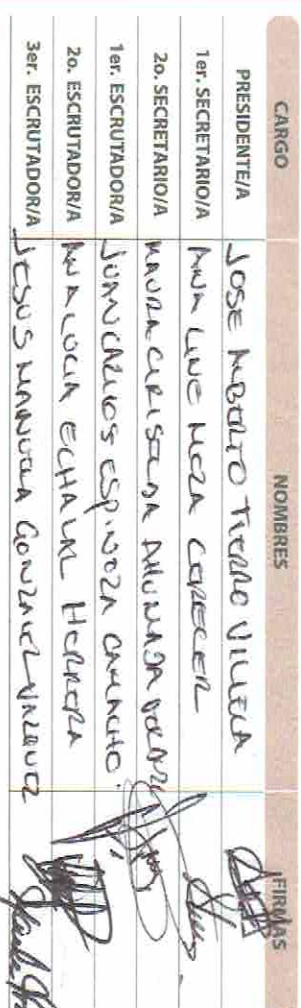 CARGO NOMBRES FIRMAS
PRESIDENTE/A JOSE ALBERTO TIERRO VILLELA
1er. SECRETARIO/A ANA LINE MEZA
2o. SECRETARIO/A MAURA
1er. ESCRUTADOR/A JUAN CARLOS ESPINOZA CAMACHO.
2o. ESCRUTADOR/A ANA LUCIA HERRERA
3er. ESCRUTADOR/A JESUS MANUELA GONZALEZ VAZQUEZ